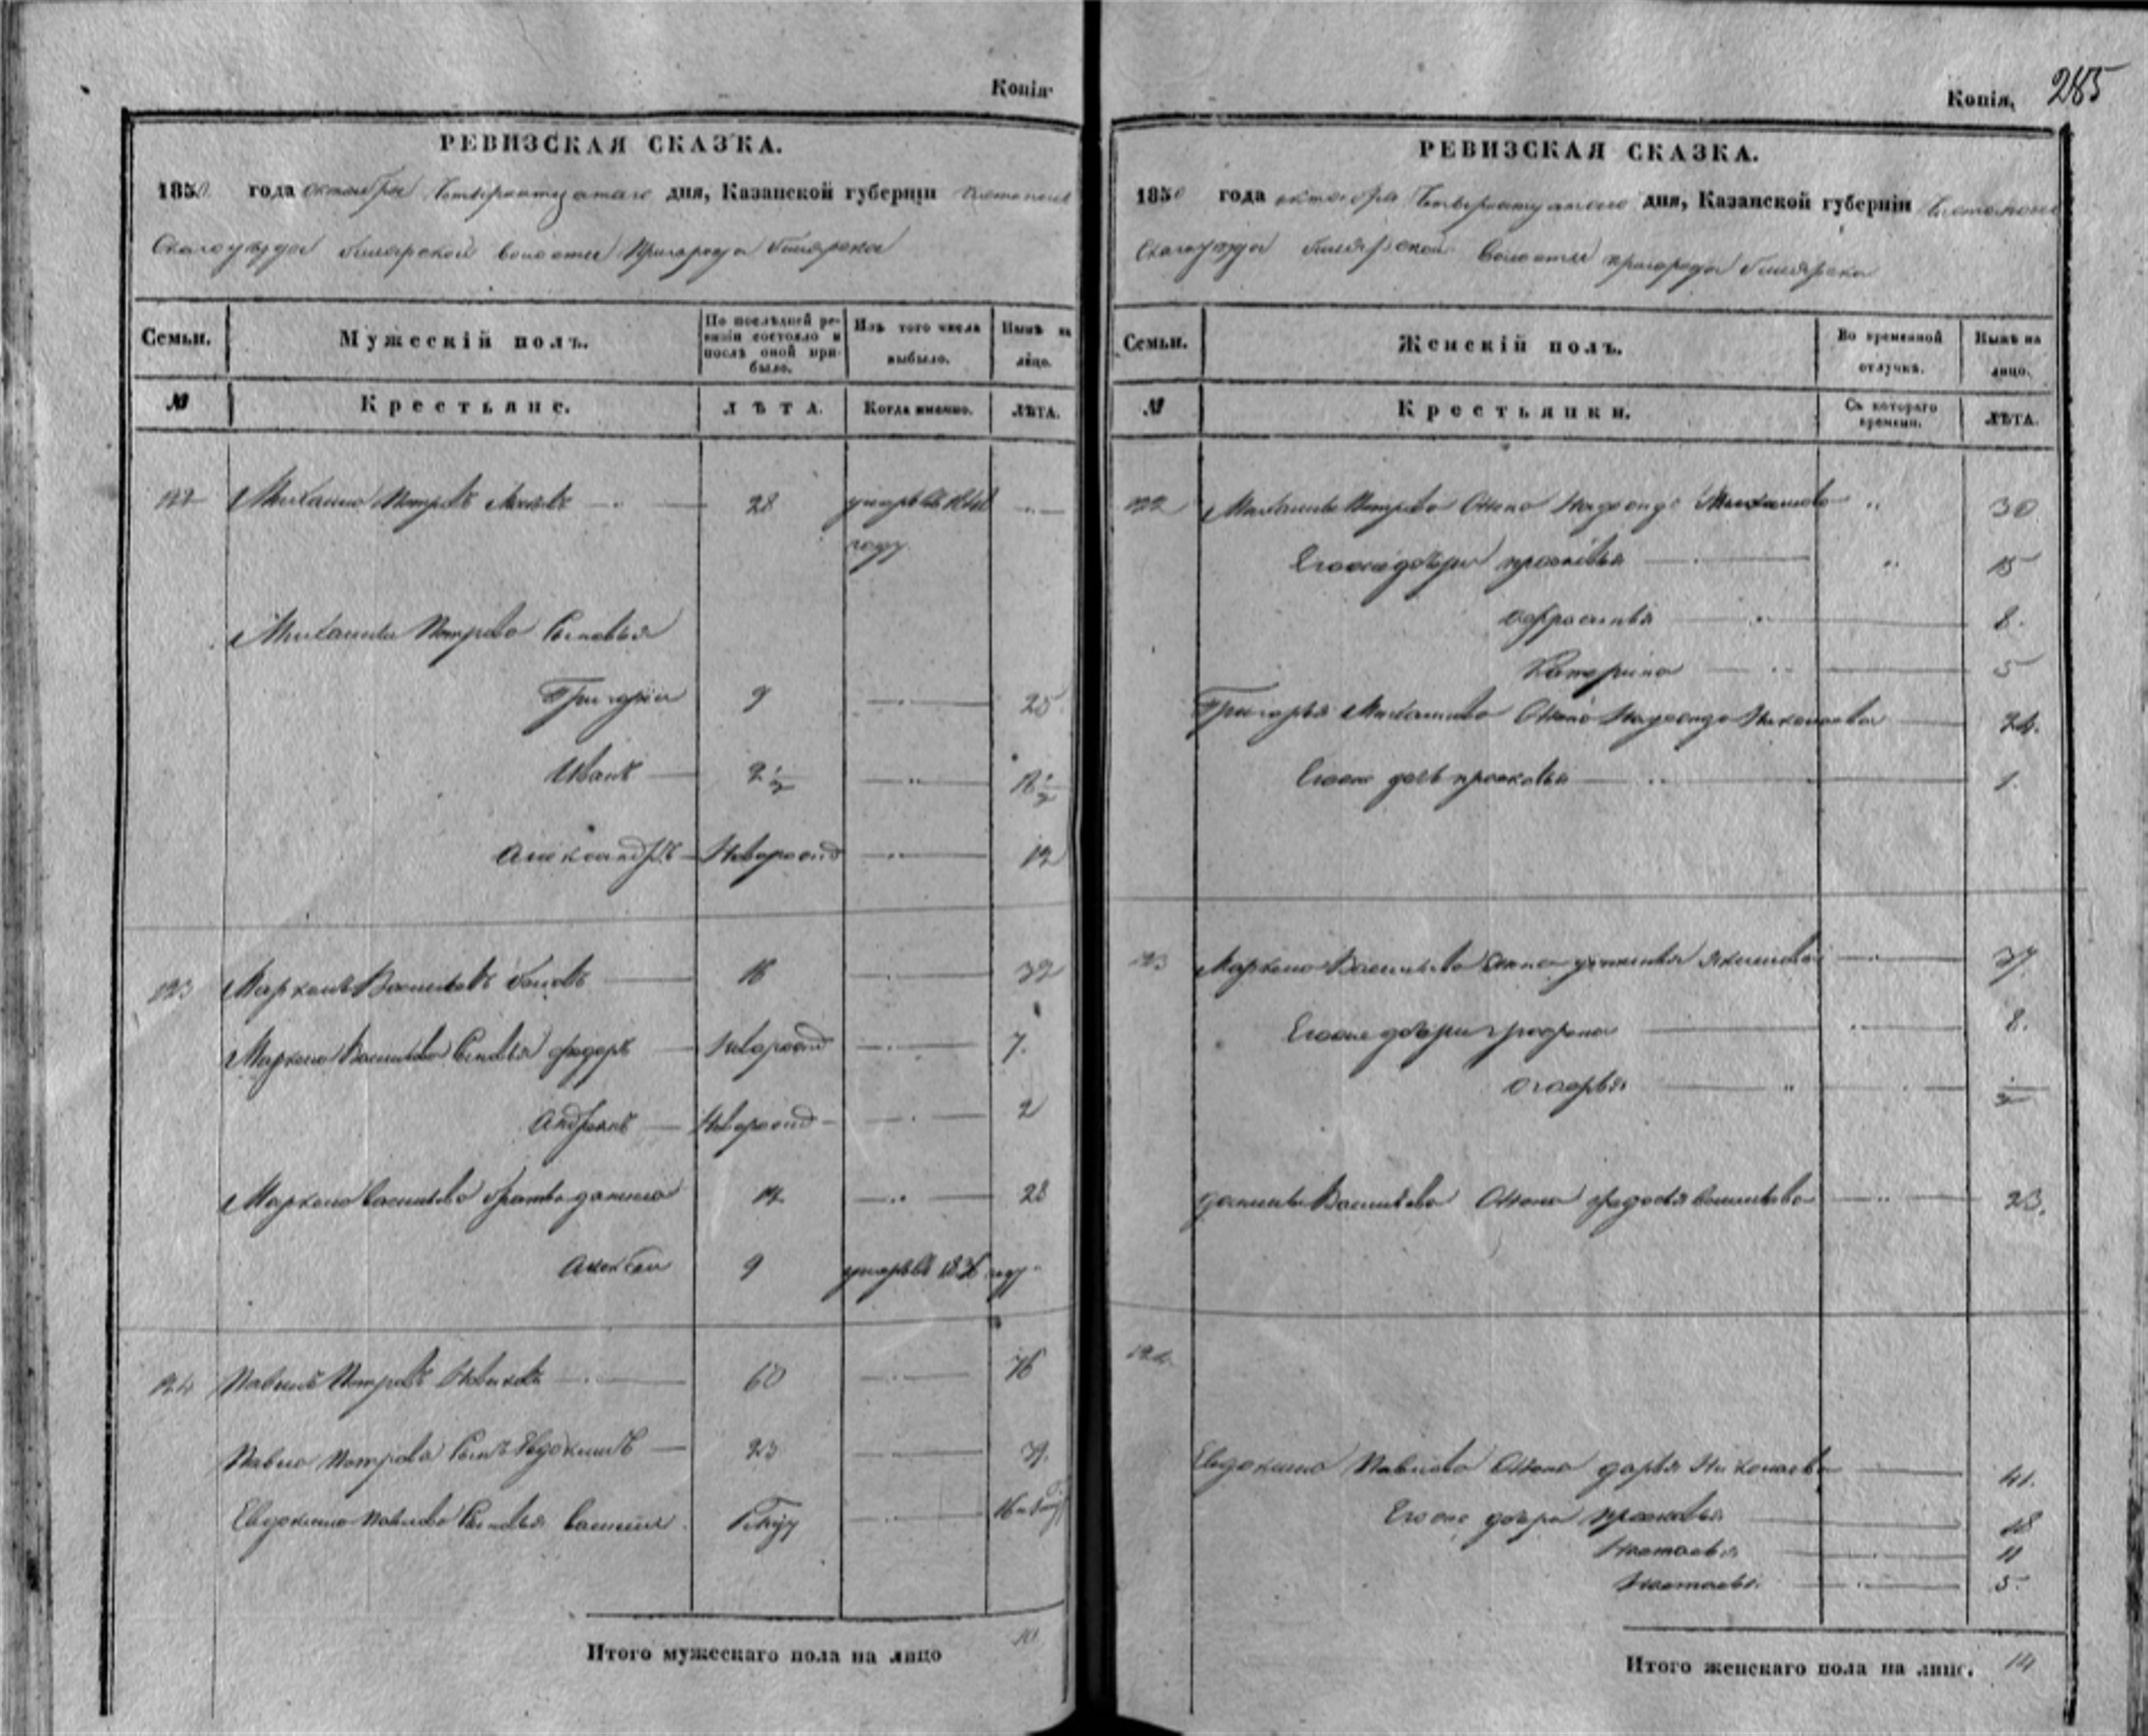 Копія
РЕВИЗСКАЯ СКАЗКА.
1850 года октября Четвертагунадесять дня, Казанской губерніи Чистополь
Скаго уѣзда билярской волости Пригорода билярска
Семьи. Мужескій полъ. По послѣдней ревизіи состояло и послѣ оной прибыло. Изъ того числа выбыло. Нынѣ на лицо.
№ Крестьяне. ЛѢТА. Когда именно. ЛѢТА.
122 Михаило Петровъ 28 умеръ въ
году
Михаила Петрова Сыновья
Григорій 9 25
Иванъ 2½ 18½
Александръ Новорожд 12
123 Маркелъ Васильевъ 16 32
Маркела Васильева Сыновья федоръ новорожд 7.
Андреянъ Новорожд 2
Маркела васильева братья данило 12 28
Алексѣй 9 умеръ въ 1836 году
124 Павелъ Петровъ Новиковъ 60 76
Павла Петрова Сынъ Евдокимъ 23 39.
Евдокима Павлова Сыновья василій 16
Итого мужескаго пола на лицо 10
Копія, 285
РЕВИЗСКАЯ СКАЗКА.
1850 года октября дня, Казанской губерніи Чистополь
Скаго уѣзда билярской волости пригорода билярска
Семьи. Женскій полъ. Во временной отлучкѣ. Нынѣ на лицо.
№ Крестьянки. Съ котораго времени. ЛѢТА.
122 Михаила Петрова Жена Михаилова 30
Егоже дочери прасковья 15
Афросинья 8.
Катерина 5
Григорья Михаилова Жена Николаева 24.
Егоже дочь прасковья 1.
123 Маркела Васильева Жена Якимова 37.
Егоже дочери 8.
½
данилы Васильева Жена федосья васильева 23.
124
Евдокима Павлова Жена дарья Николаева 41.
Егоже дочери прасковья 18
Настасья 11
Настасья 5.
Итого женскаго пола на лицо. 14